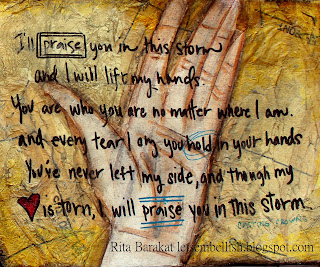 I'll praise you in this storm
and I will lift my hands.
You are who you are no matter where I am.
and every tear I cry, you hold in your hands
You've never left my side, and though my
is torn, I will praise you in this storm
CASTING CROWNS
Rita Barakat letsembellish.blogspot.com